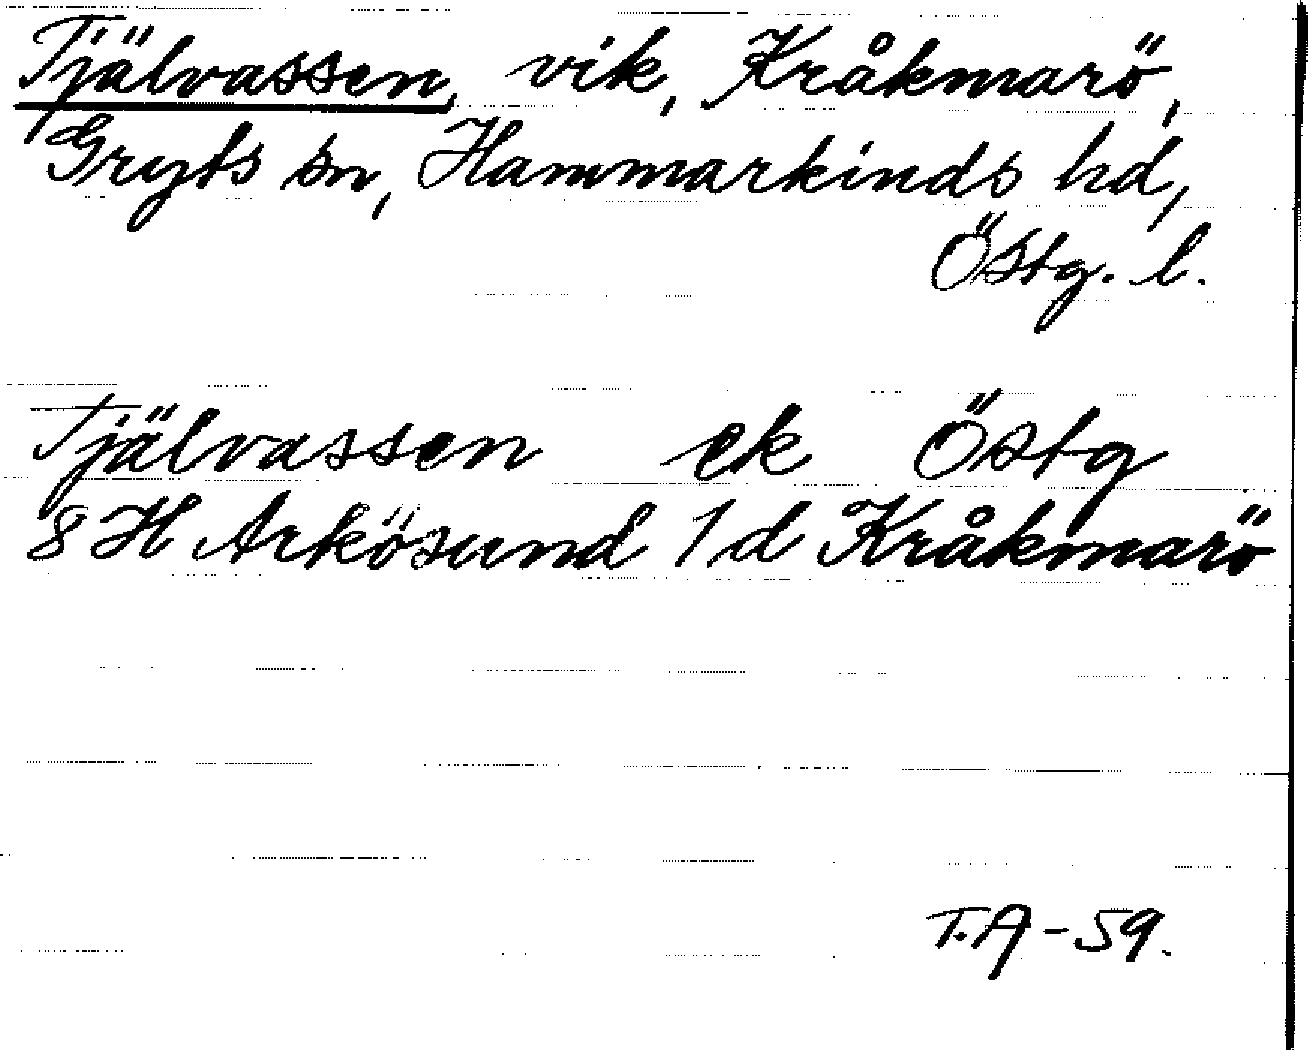 Tjälvassen, vik, Kråkmarö,
Gryts sn, Hammarkinds hd,
Östg. l.
Tjälvassen ek Östg
8 H Arkösund 1 d Kråkmarö
T.A-59.